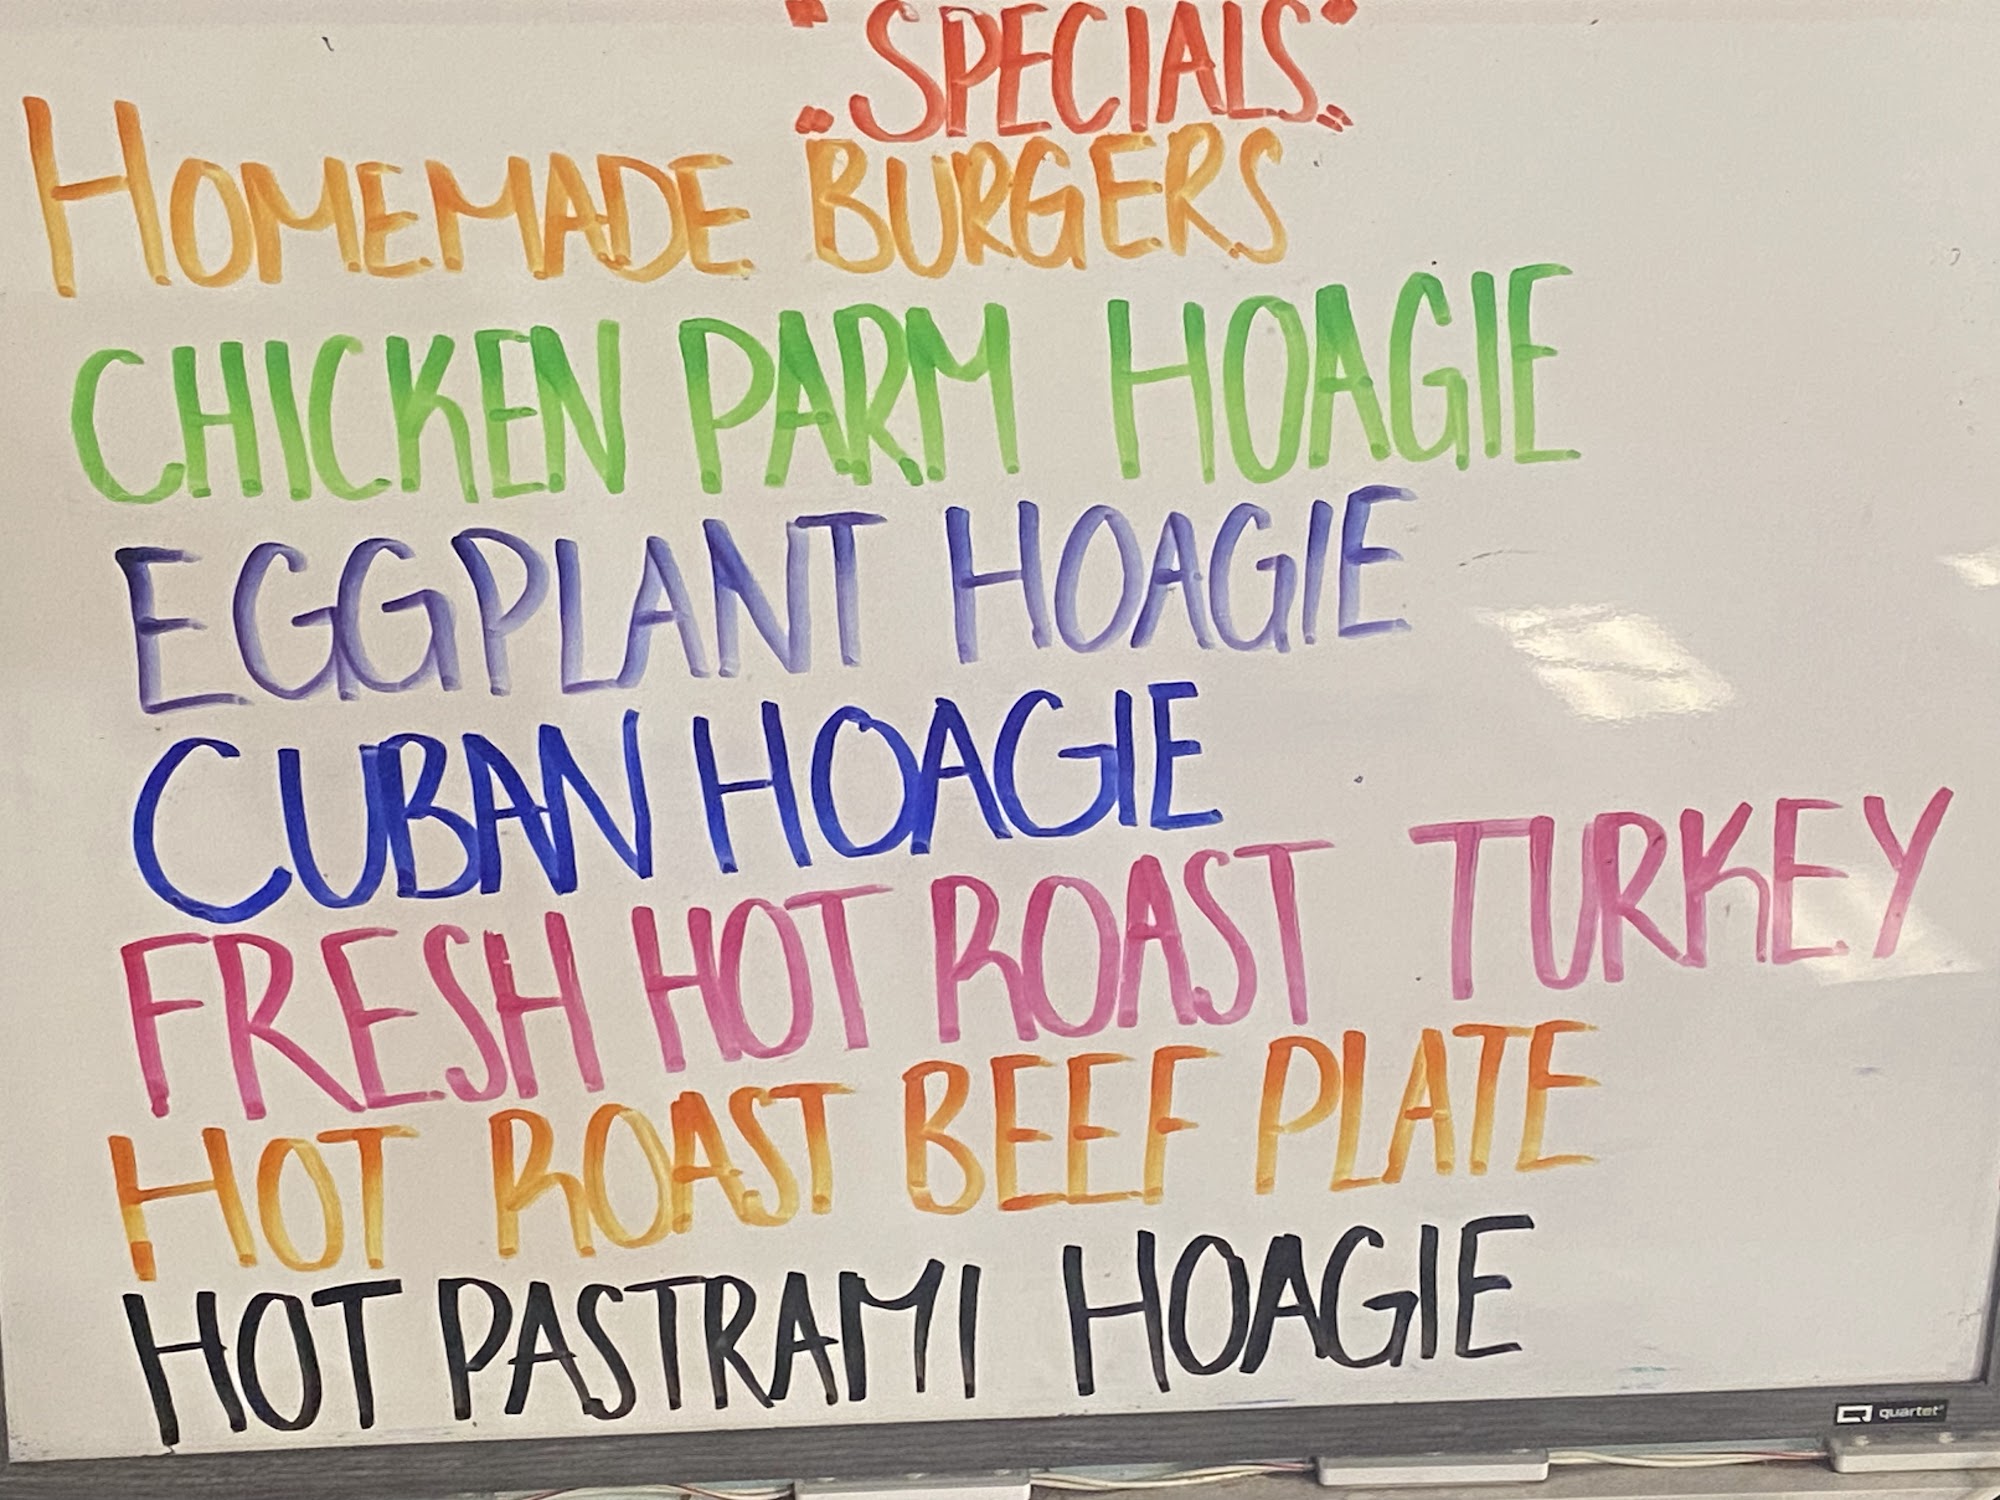 "SPECIALS"
HOMEMADE BURGERS
CHICKEN PARM HOAGIE
EGGPLANT HOAGIE
CUBAN HOAGIE
FRESH HOT ROAST TURKEY
HOT ROAST BEEF PLATE
HOT PASTRAMI HOAGIE
quartet